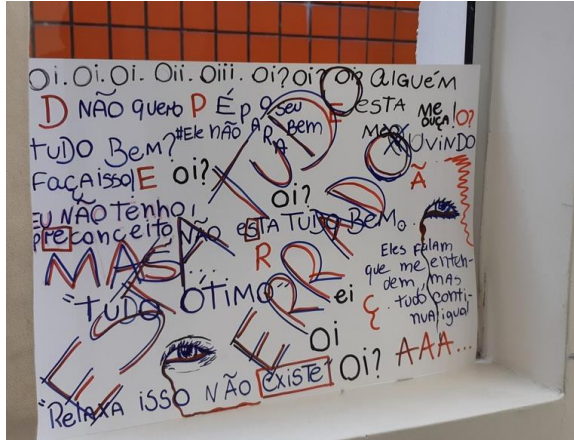 Oi. Oi. Oi. Oii. Oiii. Oi? oi? oi? alguém
D NÃO quero P É P O seu E ESTA ME OUÇA! O?
TUDO Bem? #Ele não PARA Bem ME OUVINDO
Faça isso! E oi? TUDO Ã
EU NÃO Tenho, oi?
preconceito NÃO ESTA TUDO Bem.
MAS... R Eles falam
que me enten-
dem, mas
tudo conti-
nua igual
"TUDO ÓTIMO" ei Ç
ESTA ERRADO
oi
"Relaxa isso NÃO existe" Oi? AAA...